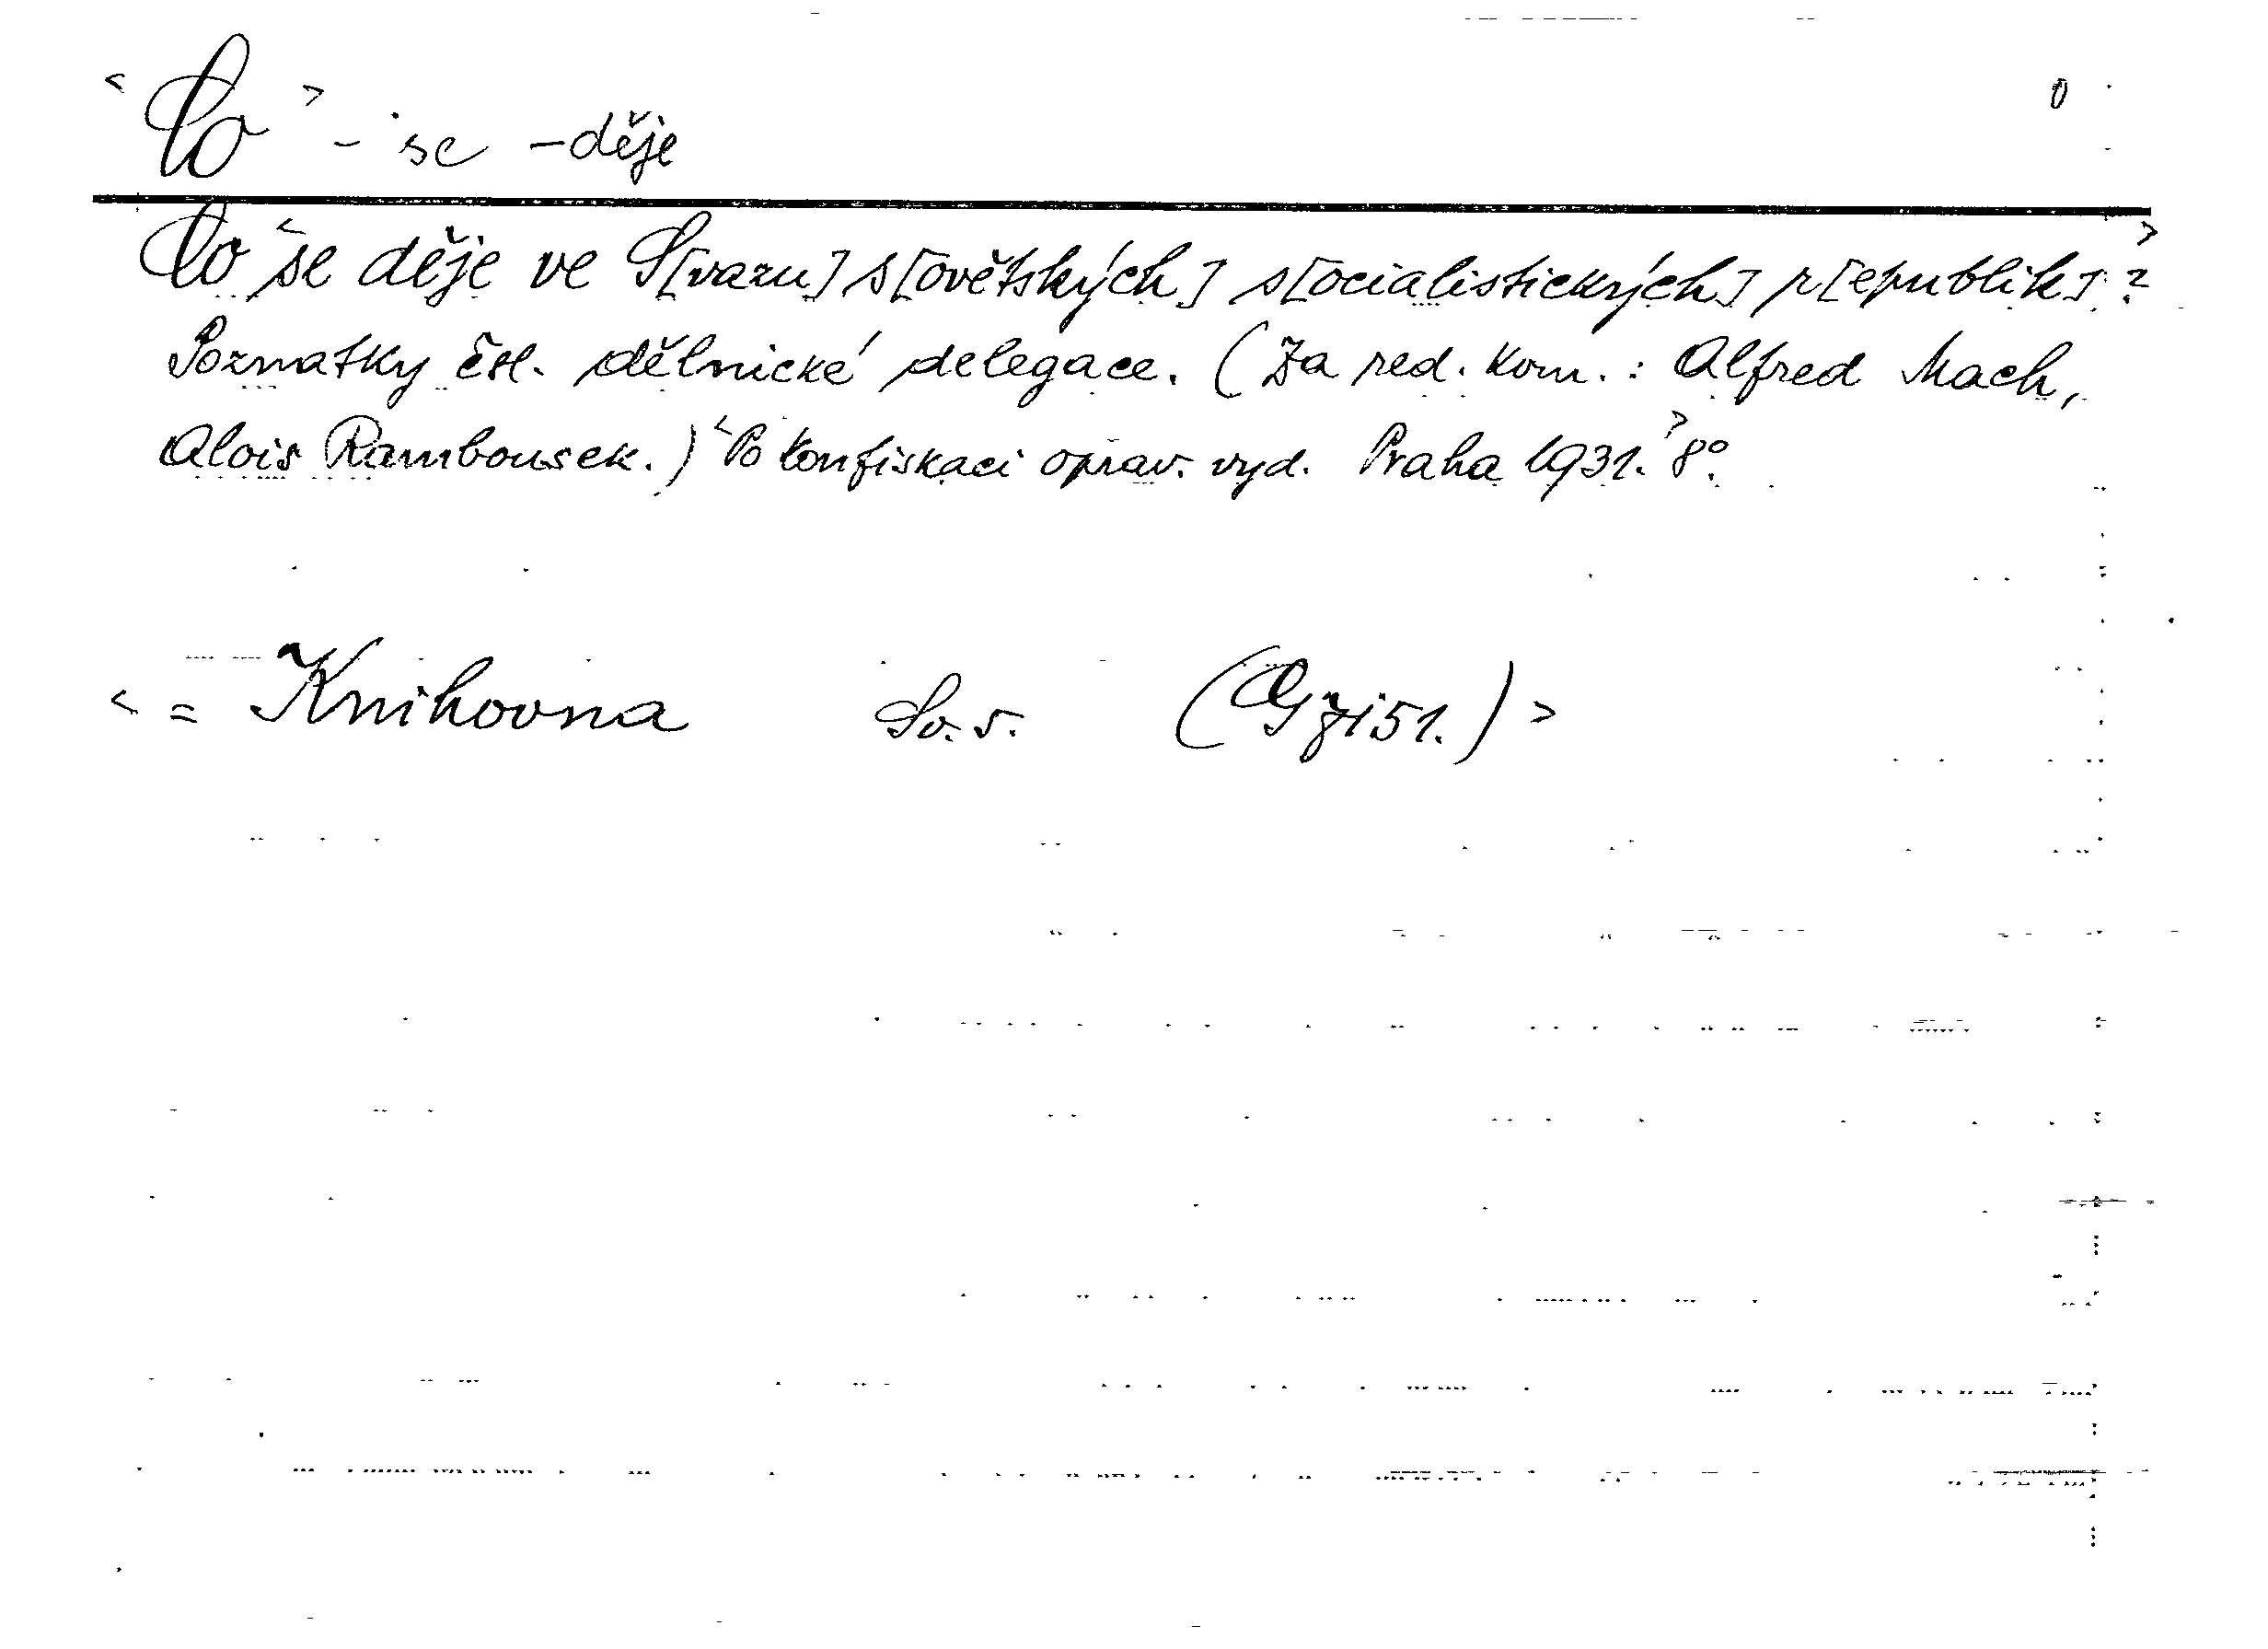 < Co > - se - děje 0
Co < se děje ve S[vazu] s[ovětských] s[ocialistických] r[epublik] ? >
Poznatky čsl. dělnické delegace. (Za red. kom.: Alfred Mach,
Alois Rambousek.) < Po konfiskaci oprav. vyd. Praha 1931. > 8°.
< = Knihovna Sv. 5. ( 51.) >